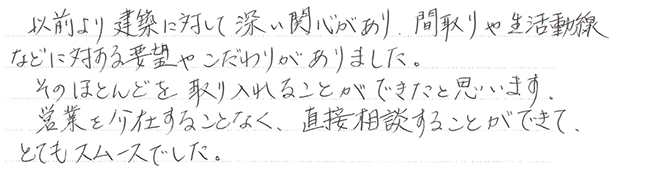 以前より建築に対して深い関心があり、間取りや生活動線
などに対する要望やこだわりがありました。
そのほとんどを取り入れることができたと思います。
営業を介在することなく、直接相談することができて、
とてもスムースでした。